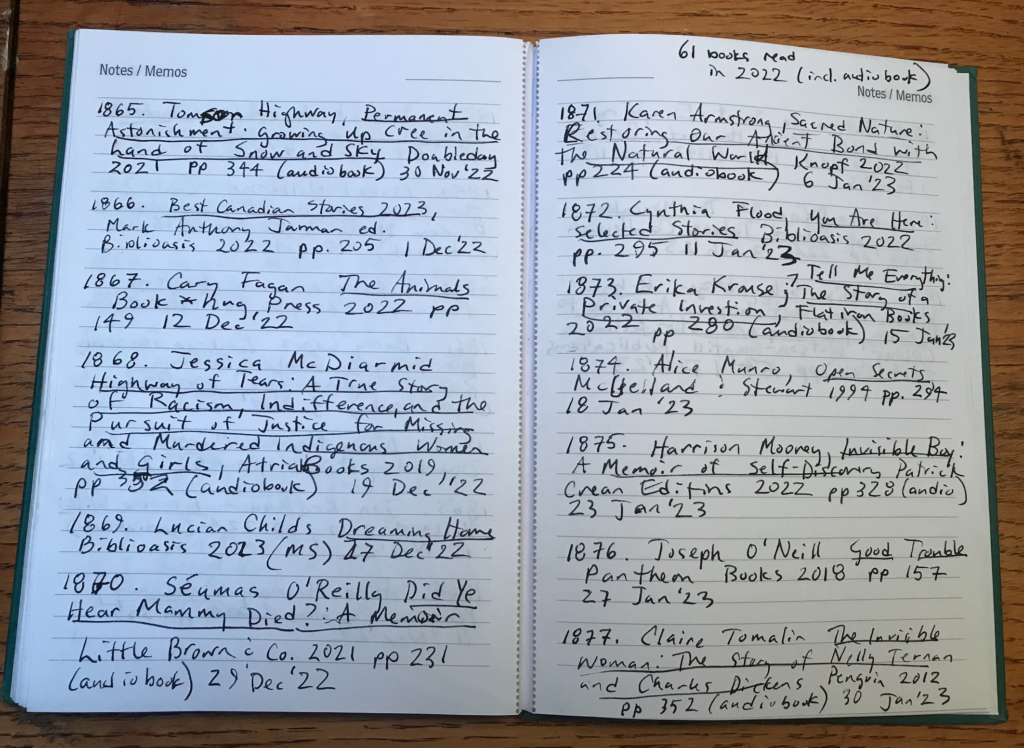 Notes / Memos
1865. Tomson Highway, Permanent
Astonishment: growing up Cree in the
Land of Snow and Sky Doubleday
2021 pp 344 (audiobook) 30 Nov '22
1866. Best Canadian Stories 2023,
Mark Anthony Jarman ed.
Biblioasis 2022 pp. 205 1 Dec '22
1867. Cary Fagan The Animals
Book*hug Press 2022 pp
149 12 Dec '22
1868. Jessica McDiarmid
Highway of Tears: A True Story
of Racism, Indifference, and the
Pursuit of Justice for Missing
and Murdered Indigenous Women
and Girls, Atria Books 2019,
pp 352 (audiobook) 19 Dec '22
1869. Lucian Childs Dreaming Home
Biblioasis 2023 (MS) 27 Dec '22
1870. Séumas O'Reilly Did Ye
Hear Mammy Died?: A Memoir
Little Brown & Co. 2021 pp 231
(audiobook) 29 Dec '22
61 books read
in 2022 (incl. audiobook)
Notes / Memos
1871. Karen Armstrong, Sacred Nature:
Restoring Our Ancient Bond with
the Natural World Knopf 2022
pp 224 (audiobook) 6 Jan '23
1872. Cynthia Flood, You Are Here:
Selected Stories Biblioasis 2022
pp. 295 11 Jan '23
1873. Erika Krouse; Tell Me Everything:
The Story of a
Private Investion, Flatiron Books
2022 pp 280 (audiobook) 15 Jan '23
1874. Alice Munro, Open Secrets
McClelland & Stewart 1994 pp. 294
18 Jan '23
1875. Harrison Mooney, Invisible Boy:
A Memoir of Self-Discovery Patrick
Crean Editins 2022 pp 328 (audio)
23 Jan '23
1876. Joseph O'Neill Good Trouble
Pantheon Books 2018 pp 157
27 Jan '23
1877. Claire Tomalin The Invisible
Woman: The Story of Nelly Ternan
and Charles Dickens Penguin 2012
pp 352 (audiobook) 30 Jan '23